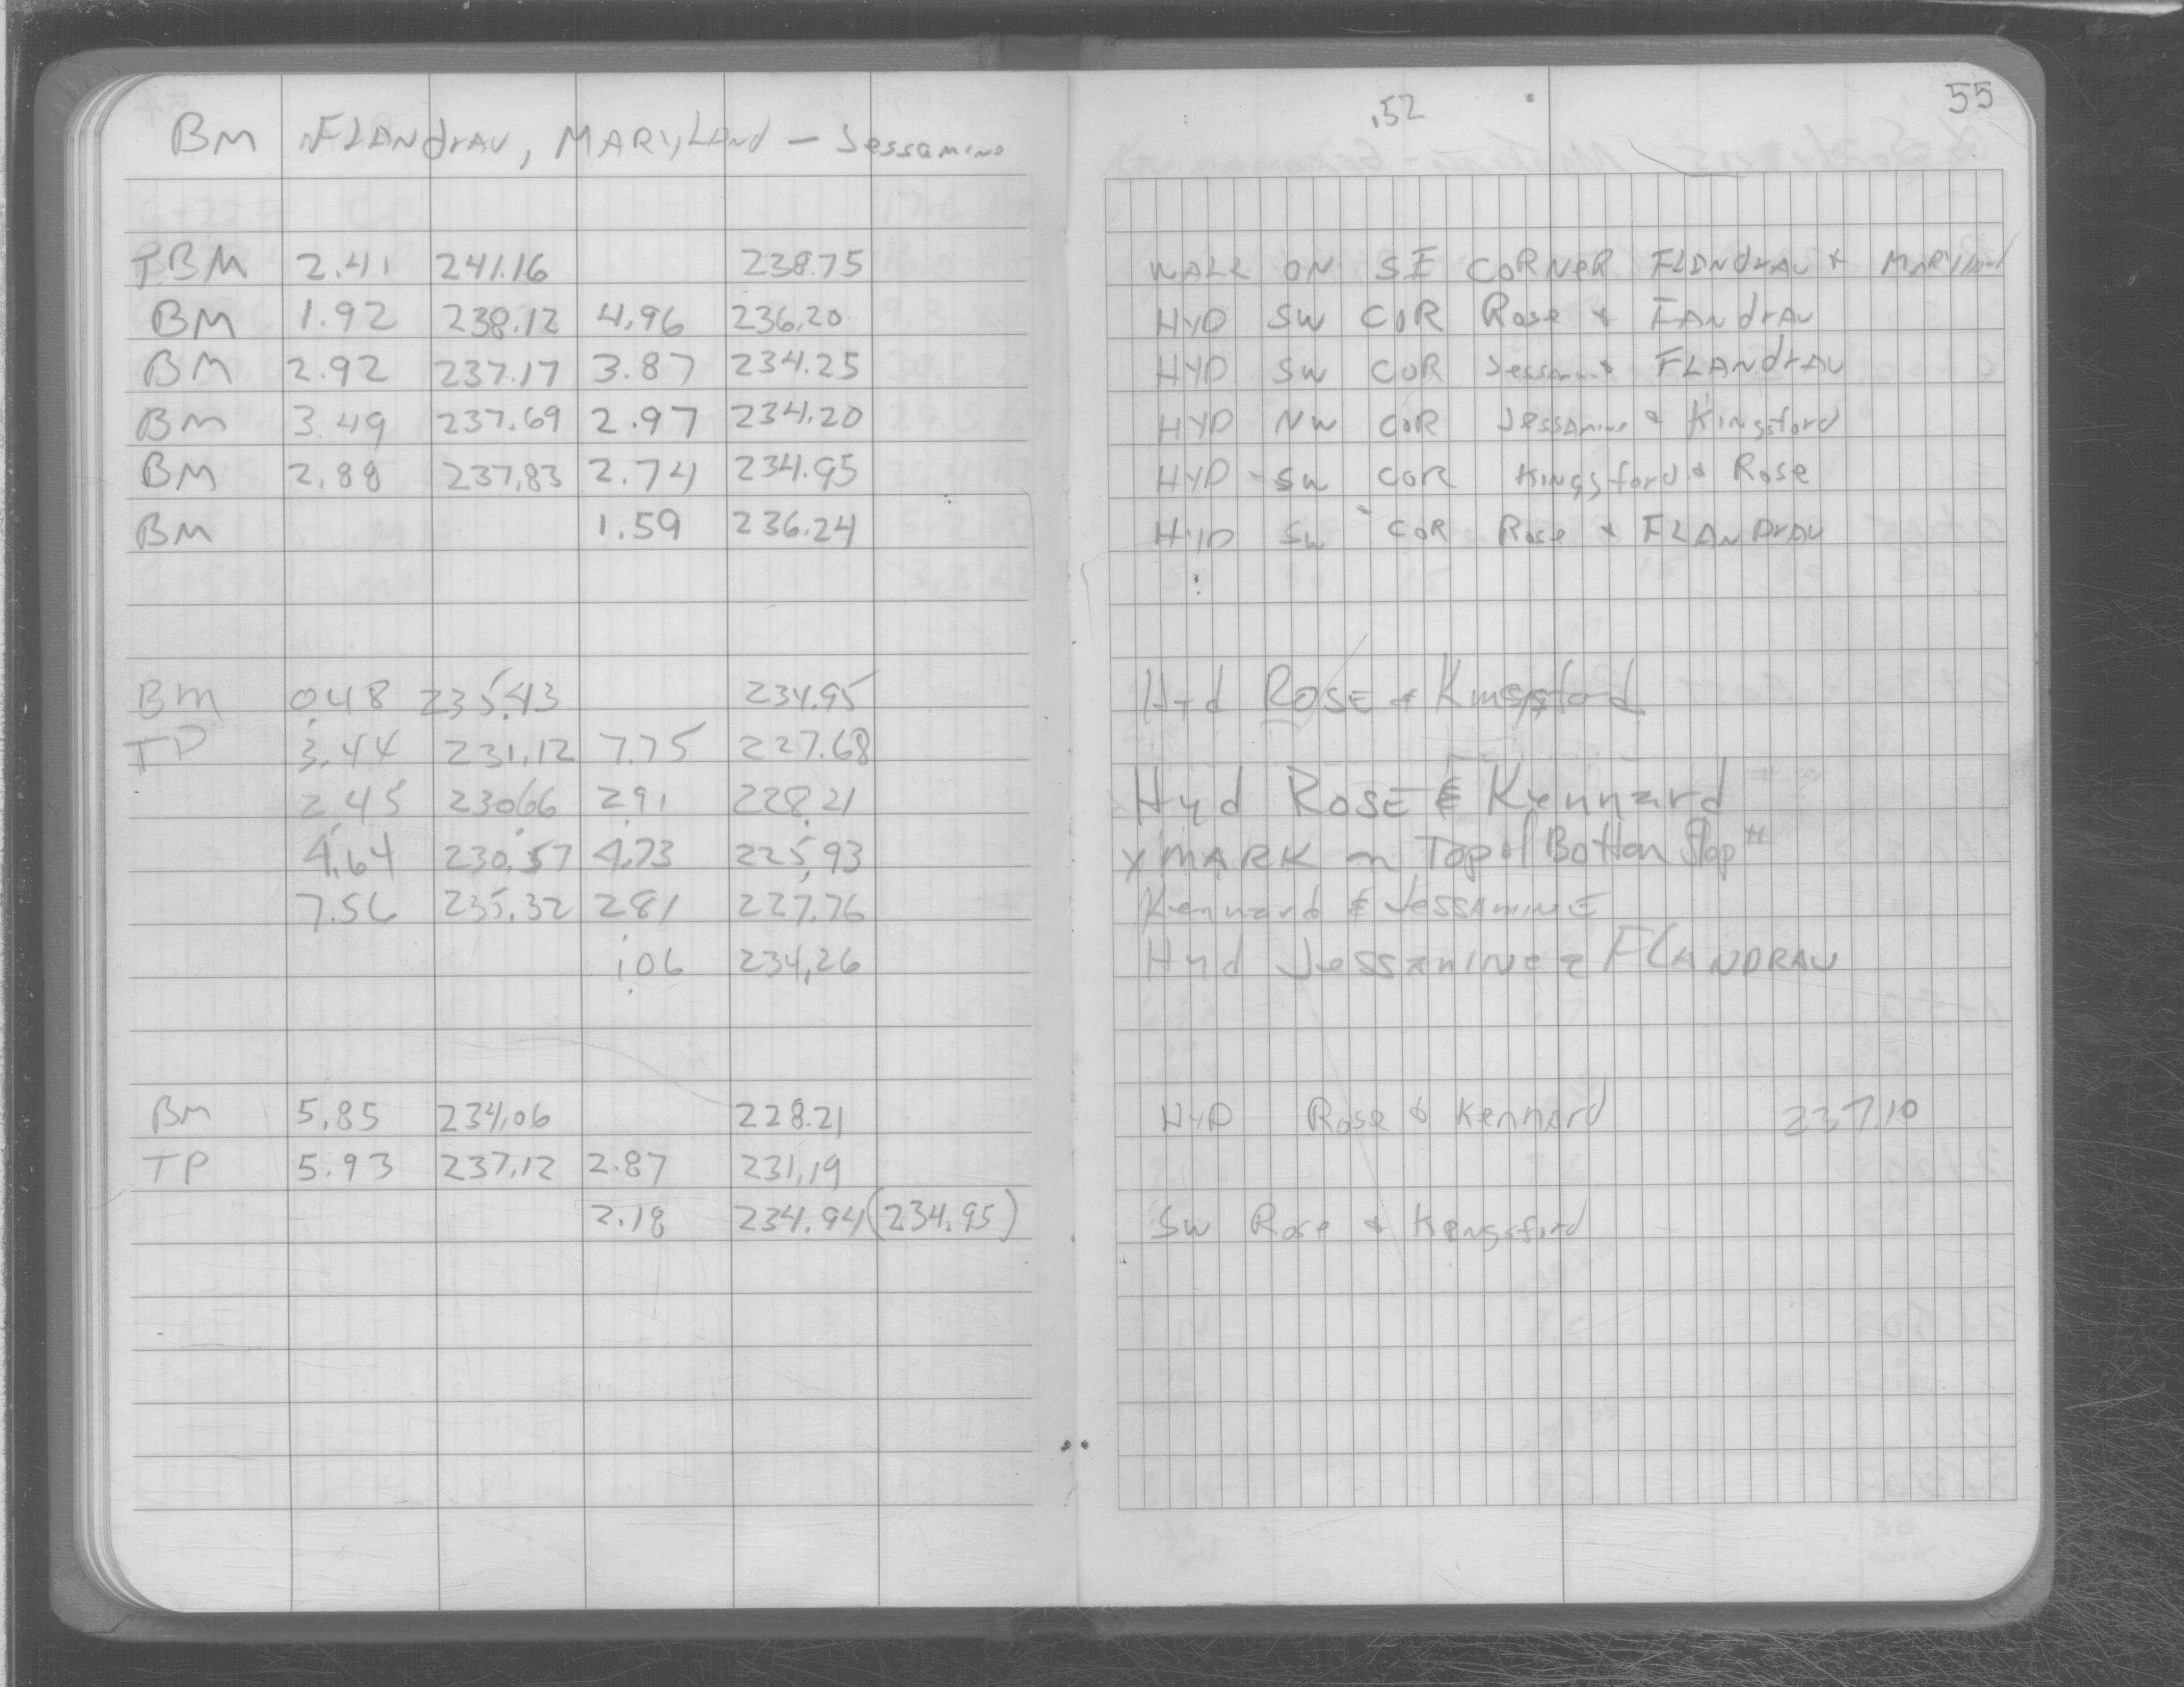 BM FLANdrAU, MARYLANd - Jessamine
.52
55
TBM 2.41 241.16 238.75 WALL ON SE CORNER FLANdrAU & MARYLAnd
BM 1.92 238.12 4.96 236.20 HYD SW COR Rose & FANdrAU
BM 2.92 237.17 3.87 234.25 HYD SW COR Jessamine FLANdrAU
BM 3.49 237.69 2.97 234.20 HYD NW COR Jessamine & Kingsford
BM 2.88 237.83 2.74 234.95 HYD SW COR Kingsford & Rose
BM 1.59 236.24 HYD SW COR Rose & FLANDrAU
BM 0.48 235.43 234.95 Hyd ROSE & Kingsford
TP 3.44 231.12 7.75 227.68
2.45 230.66 2.91 228.21 Hyd ROSE & Kennard
4.64 230.57 4.73 225.93 X MARK on Top of Botton Stop
7.56 235.32 2.81 227.76 Kennard & JESSAMINE
1.06 234.26 Hyd JESSAMINE & FLANDRAU
BM 5.85 234.06 228.21 HYD Rose & Kennard 237.10
TP 5.93 237.12 2.87 231.19
2.18 234.94 (234.95) SW Rose & Kengsford